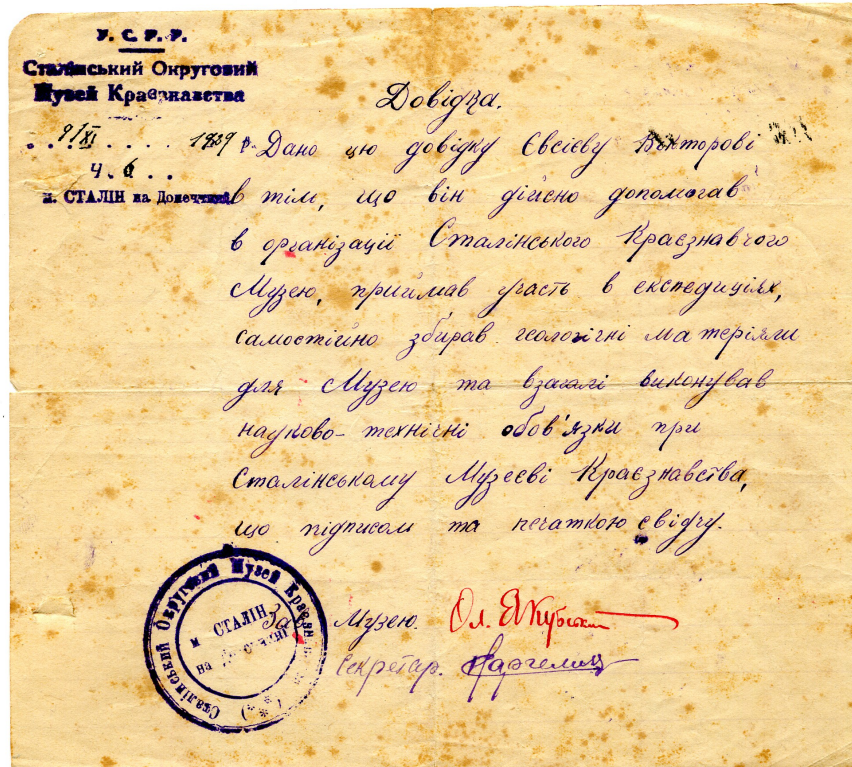 У. С. Р. Р.
Сталінський Округовий
Музей Краєзнавства
9/XI 1929 р.
Ч. 6
м. СТАЛІН на Донеччині
Довідка.
Дано цю довідку Євсієву Вікторові
в тім, що він дійсно допомагав
в організації Сталінського Краєзнавчого
Музею, приймав участь в експедиціях,
самостійно збирав геологічні матеріяли
для Музею та взагалі виконував
науково-технічні обов'язки при
Сталінському Музеєві Краєзнавства,
що підписом та печаткою свідчу.
Зав. Музею. Ол. Якубський
Секретар.
Сталінський Округовий Музей Краєзнавства
м СТАЛІН
на Донеччині